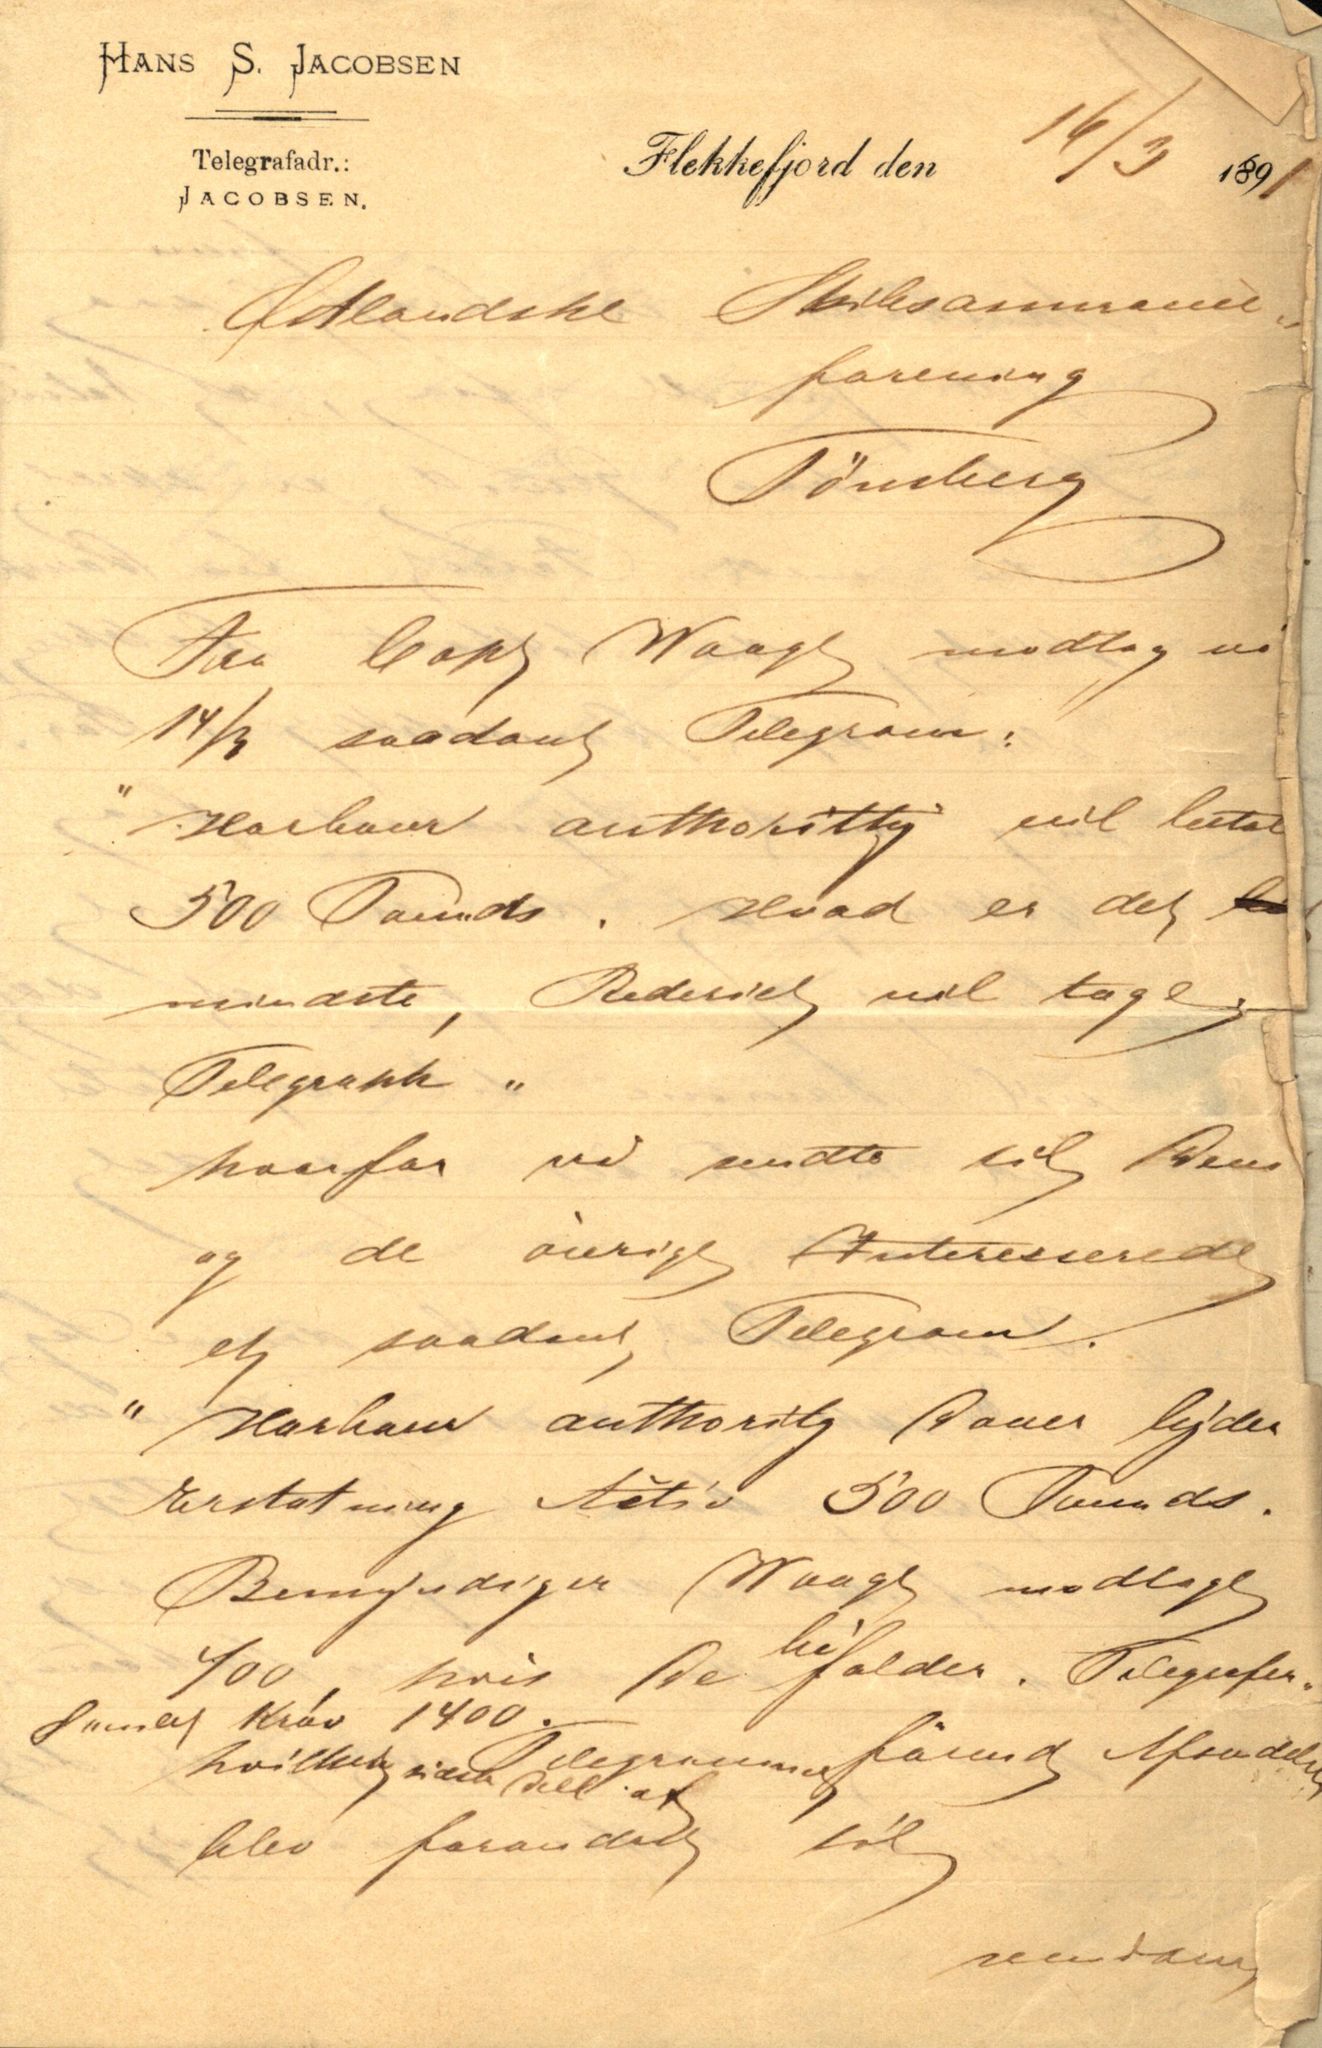 HANS S. JACOBSEN
Telegrafadr.:
JACOBSEN.
Flekkefjord den 16/3 1891
Østlandske Skibsassurance"
forening
Tönsberg
Fra Capt Waage modtog vi
14/3 saadant Telegram:
" Harbour authoritty vil betal
500 Pounds. Hvad er det
mindste, Rederiet vil tage.
Telegraph "
hvorfor vi sendte til Dem
og de övrige Interesserede
et saadant Telegram.
" Harbour authority Dover byder
Erstatning Activ 500 Pounds.
Bemyndiger Waage modtage
400, hvis De bifalder. Telegrafer"
Krav 1400.
hvilket sidste Telegram förend Afsendelsen
Deel af
blev forandret til